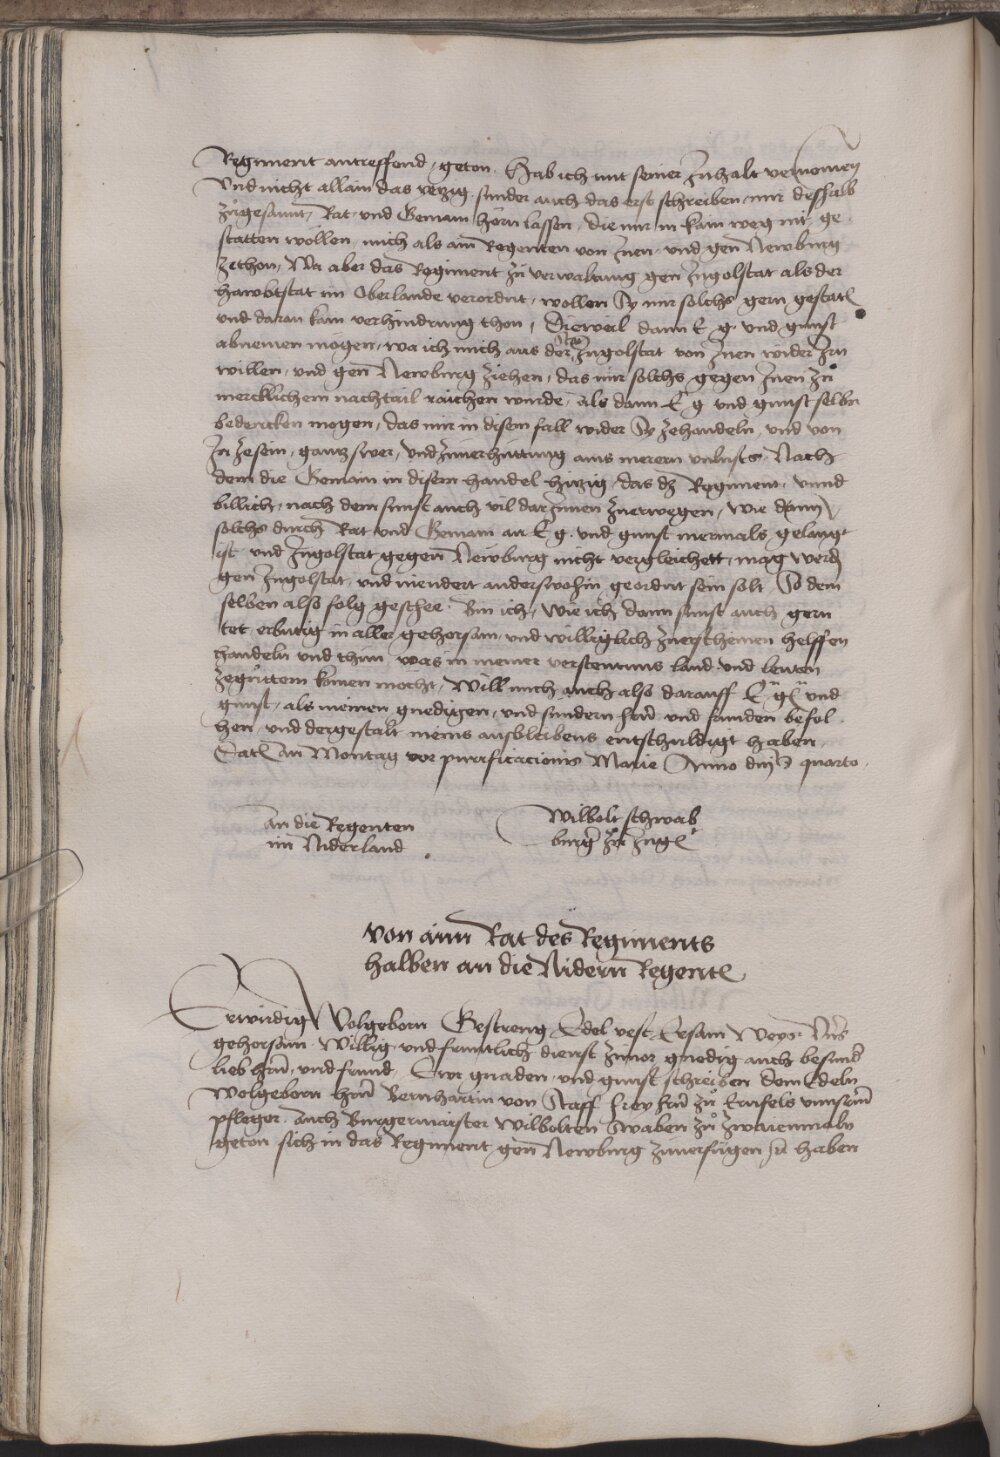 Regiment antreffend, geton. Hab ich mit seiner Inhalt vernomen
Vnd nicht allain das yetzig, sunder auch das erst schreiben, mir deshalb
zugesannt, Rat vnd Gemain hörn lassen, die mir in kain weg nit ge
statten wollen, mich als ain Regenten von Inen, vnd gen Newburg
zethon, Wa aber das Regiment zu verwaltung gen Ingolstat als der
hawbtstat im Oberlande verordnt, wollen Sy mir solchs gern gestatt
vnd daran kain verhindrung thon, Dieweil dann E g. vnd gunst
abnemen mögen, wa ich mich aus der Stat Ingolstat von Inen wider Irn
willen, vnd gen Newburg ziehen, das mir solchs gegen Inen zu
mercklichem nachtail raichen wurde, als dann E g vnd gunst selbn
bedencken mogen, das mir in disem fall wider Sy zehandeln, vnd von
In zesein, gantz swer, vnd zuuerhüttung ains merern vnlusts. Nach
dem die Gemain in disem handel hitzig, das dz Regiment, vnnd
billich, nach dem sunst auch vil darInnen zuerwegen, wie dann
solchs durch Rat vnd Gemain an E g. vnd gunst mermals gelangt
ist vnd Ingolstat gegen Newburg nicht vergleichett, mag werd
gen Ingolstat, vnd niendert anderswohin geordnt sein solt. So dem
selben also folg geschee. Bin ich, wie ich dann sunst auch gern
tet erbutig in aller gehorsam, vnd williglich zuerscheinen helffen
handeln vnd thun, was in meiner verstentnus land vnd leuten
zeguttem komen mocht, Will mich auch also darauff E g vnd
gunst, als meinen gnedigen, vnd sundern hrn vnd frunden befol
hen, vnd dergestalt meins ausbleibens entschuldigt haben.
Dat An Montag vor purificacionis Marie Anno dni quarto.
An die Regenten
im Niderland
Wilbolt schwab
burg zu Ing
Von aim Rat des Regiments
halben an die Nidern Regent
Erwirdig Wolgeborn Gestreng, Edel vest, Ersam Weys. Vns
gehorsam. Willig, vnd fruntlich dienst zuuor gnedig auch besund
lieb hrn, vnd frund, Ewr gnaden, vnd gunst schreiben dem Edeln
Wolgeborn hrn Bernhartin von Stauff frey hrn zu Ernfels vnnserm
pfleger. Auch Burgermaister Wilbolten Swaben zu zwaienmaln
geton sich in das Regiment gen Newburg zuuerfügen haben